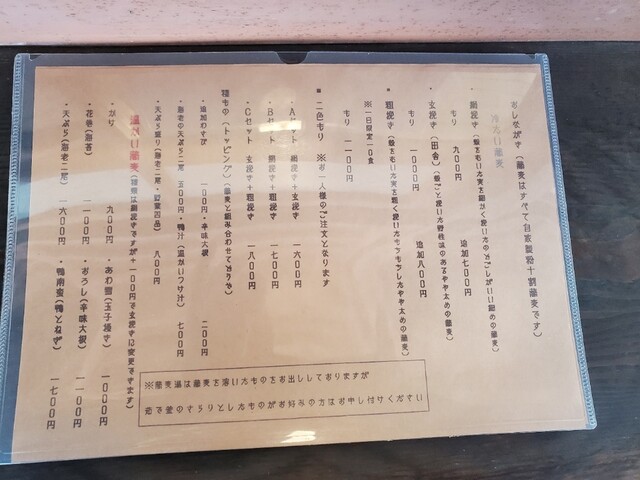 おしながき（蕎麦はすべて自家製粉十割蕎麦です）
冷たい蕎麦
・細挽き（殻をむいた実を細かく挽いたのどごしがいい細めの蕎麦）
もり 九〇〇円 追加七〇〇円
・玄挽き（田舎）（殻ごと挽いた野性味のあるやや太めの蕎麦）
もり 一〇〇〇円 追加八〇〇円
・粗挽き（殻をむいた実を粗く挽いたもっちもちしたやや太めの蕎麦）
※一日限定一〇食
もり 一一〇〇円
・二色もり ※お一人様のご注文となります
・Aセット 細挽き＋玄挽き 一六〇〇円
・Bセット 細挽き＋粗挽き 一七〇〇円
・Cセット 玄挽き＋粗挽き 一八〇〇円
種もの（トッピング）（蕎麦と組み合わせてどうぞ）
・追加わさび 一〇〇円・辛味大根 二〇〇円
・海老の天ぷら二尾 五〇〇円・鴨汁（温かいつけ汁） 七〇〇円
・天ぷら盛り（海老二尾・野菜四品） 八〇〇円
温かい蕎麦（種類は細挽きですが＋一〇〇円で玄挽きに変更できます）
・かけ 九〇〇円 ・あわ雪（玉子綴き） 一〇〇〇円
・花巻（海苔） 一一〇〇円 ・おろし（辛味大根） 一一〇〇円
・天ぷら（海老二尾） 一六〇〇円 ・鴨南蛮（鴨とねぎ） 一七〇〇円
※蕎麦湯は蕎麦を溶いたものをお出ししておりますが
茹で釜のさらりとしたものがお好みの方はお申し付けください